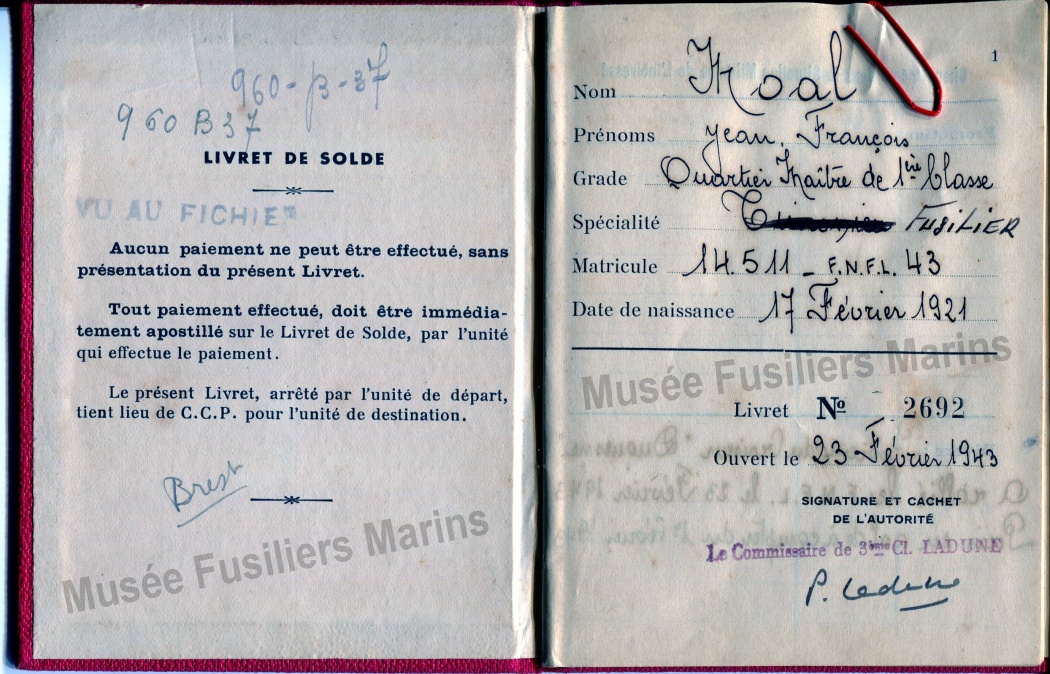 960-B-37
960 B 37
LIVRET DE SOLDE
VU AU FICHIER
Aucun paiement ne peut être effectué, sans
présentation du présent Livret.
Tout paiement effectué, doit être immédia-
tement apostillé sur le Livret de Solde, par l'unité
qui effectue le paiement.
Le présent Livret, arrêté par l'unité de départ,
tient lieu de C.C.P. pour l'unité de destination.
Brest
Musée Fusiliers Marins
1
Nom Moal
Prénoms Jean, François
Grade Quartier Maître de 1ère Classe
Spécialité FUSILIER
Matricule 14.511 - F.N.F.L. 43
Date de naissance 17 Février 1921
Musée Fusiliers Marins
Livret No 2692
Ouvert le 23 Février 1943
SIGNATURE ET CACHET
DE L'AUTORITÉ
Le Commissaire de 3ème CL LADUNE
P. Ladune